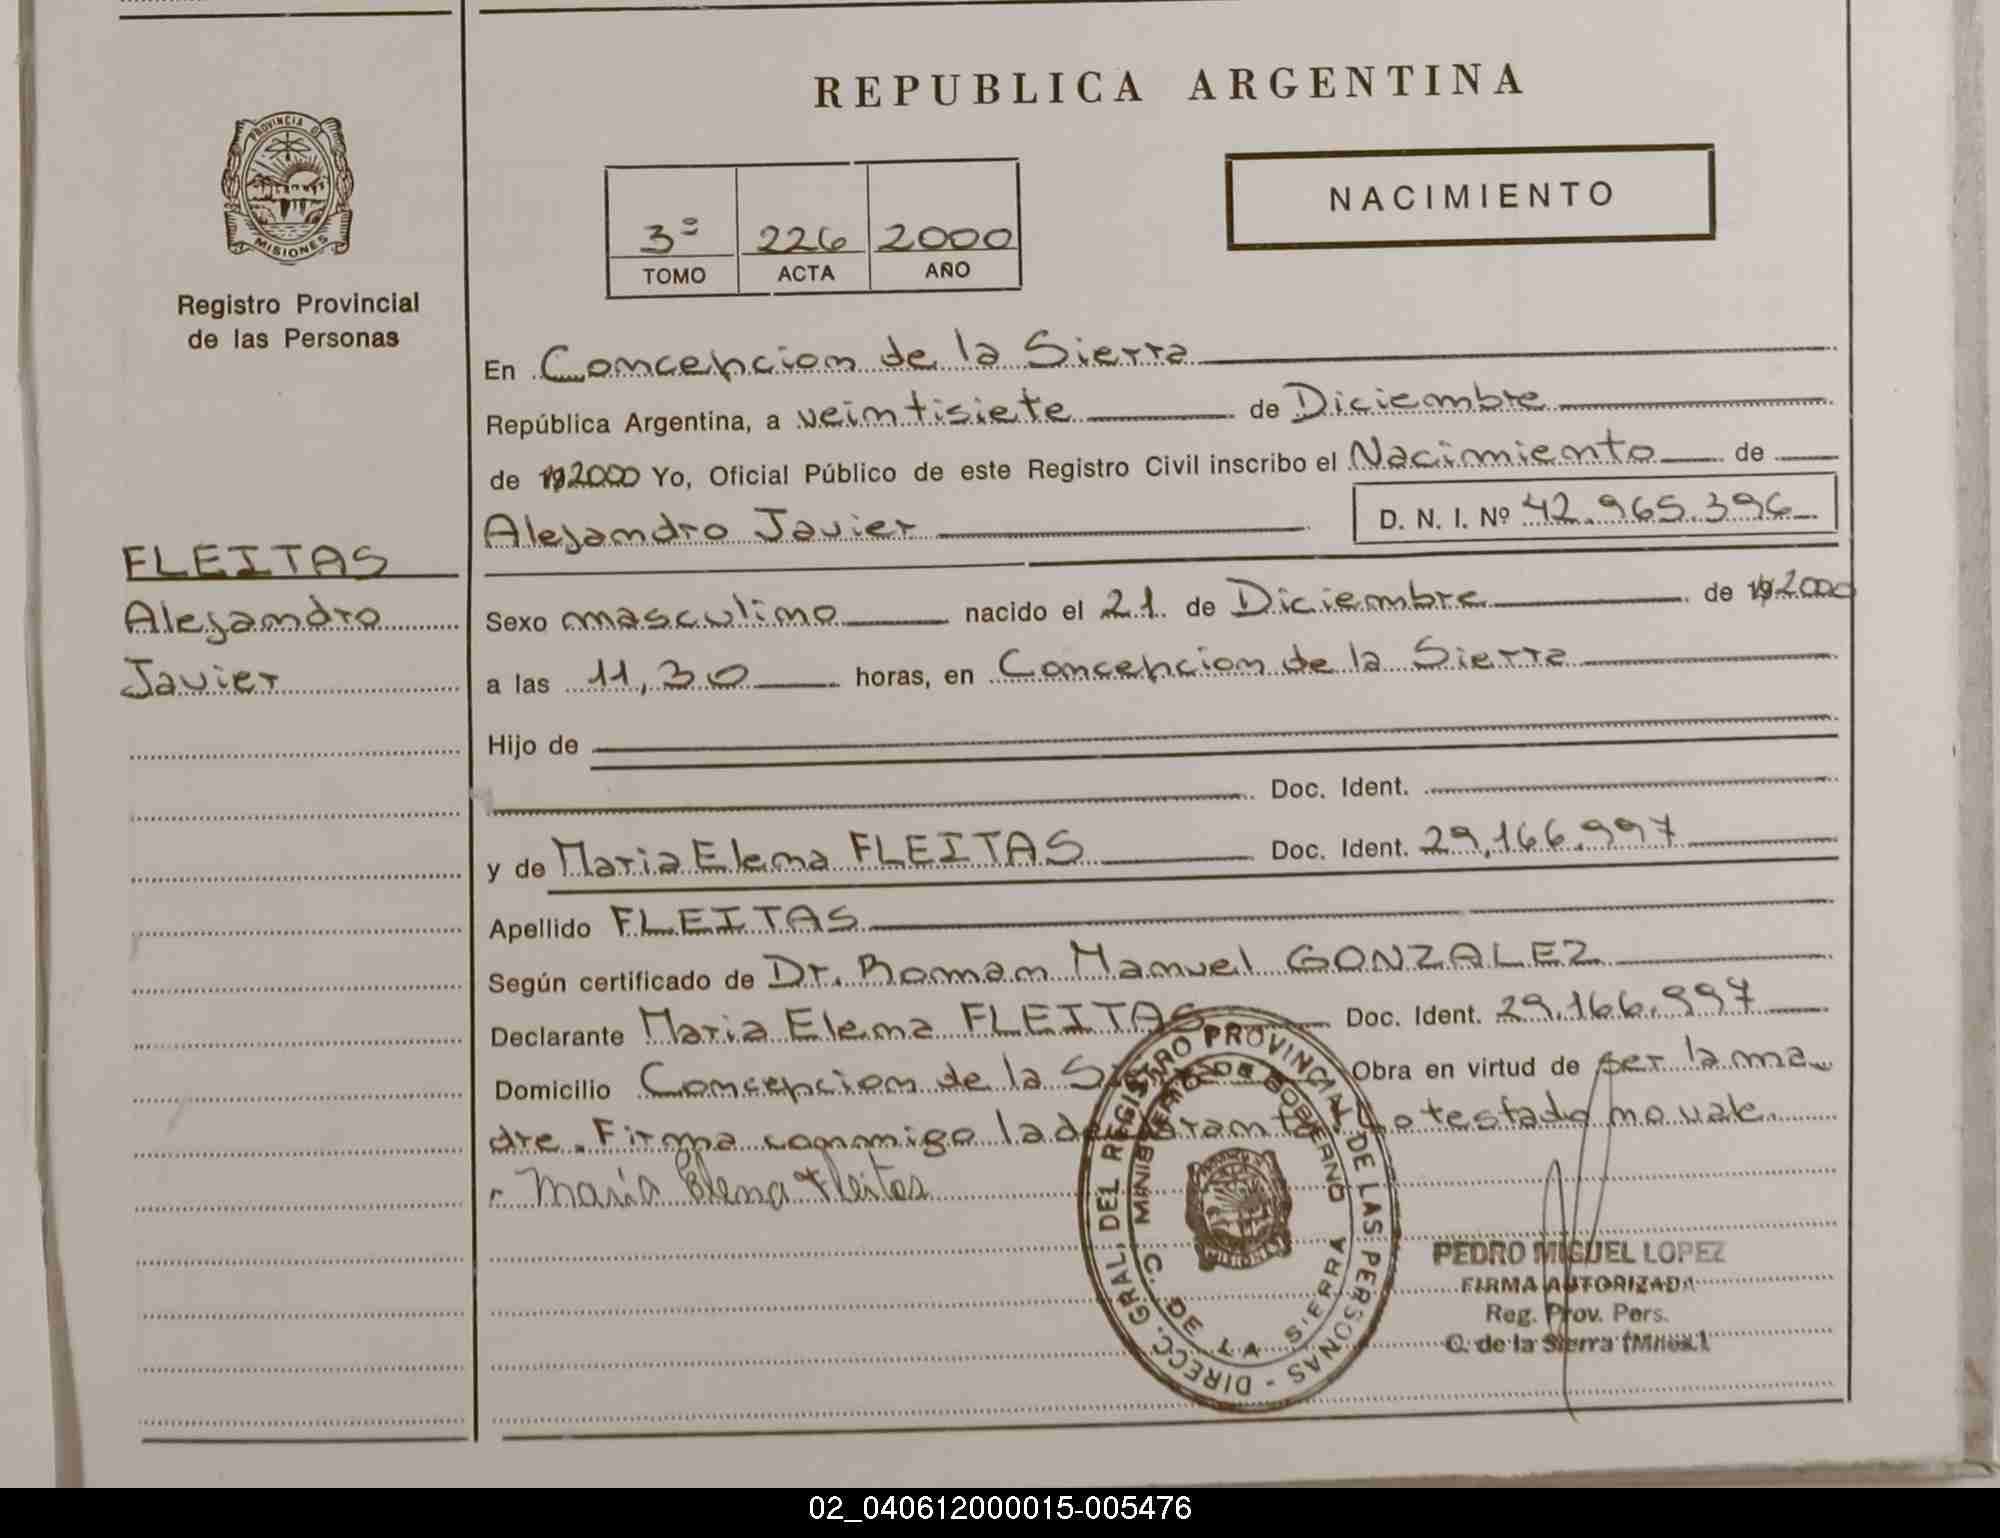 REPUBLICA ARGENTINA
PROVINCIA DE
MISIONES
Registro Provincial
de las Personas
3º 226 2000
TOMO ACTA AÑO
NACIMIENTO
En Concepcion de la Sierra
República Argentina, a veintisiete de Diciembre
de 192000 Yo, Oficial Público de este Registro Civil inscribo el Nacimiento de
Alejandro Javier D. N. I. Nº 42.965.396
FLEITAS
Alejandro
Javier
Sexo masculino nacido el 21 de Diciembre de 192000
a las 11,30 horas, en Concepcion de la Sierra
Hijo de
Doc. Ident.
y de Maria Elena FLEITAS Doc. Ident. 29,166.997
Apellido FLEITAS
Según certificado de Dr. Roman Manuel GONZALEZ
Declarante Maria Elena FLEITAS Doc. Ident. 29.166.997
Domicilio Concepcion de la Obra en virtud de ser la ma
dre. Firma conmigo la declarante Lo testado no vale.
María Elena Fleitas
DIRECC. GRAL. DEL REGISTRO PROVINCIAL DE LAS PERSONAS -
MINISTERIO DE GOBIERNO
C. DE LA SIERRA
PEDRO MIGUEL LOPEZ
FIRMA AUTORIZADA
Reg. Prov. Pers.
C. de la Sierra (Mnes.)
02_040612000015-005476